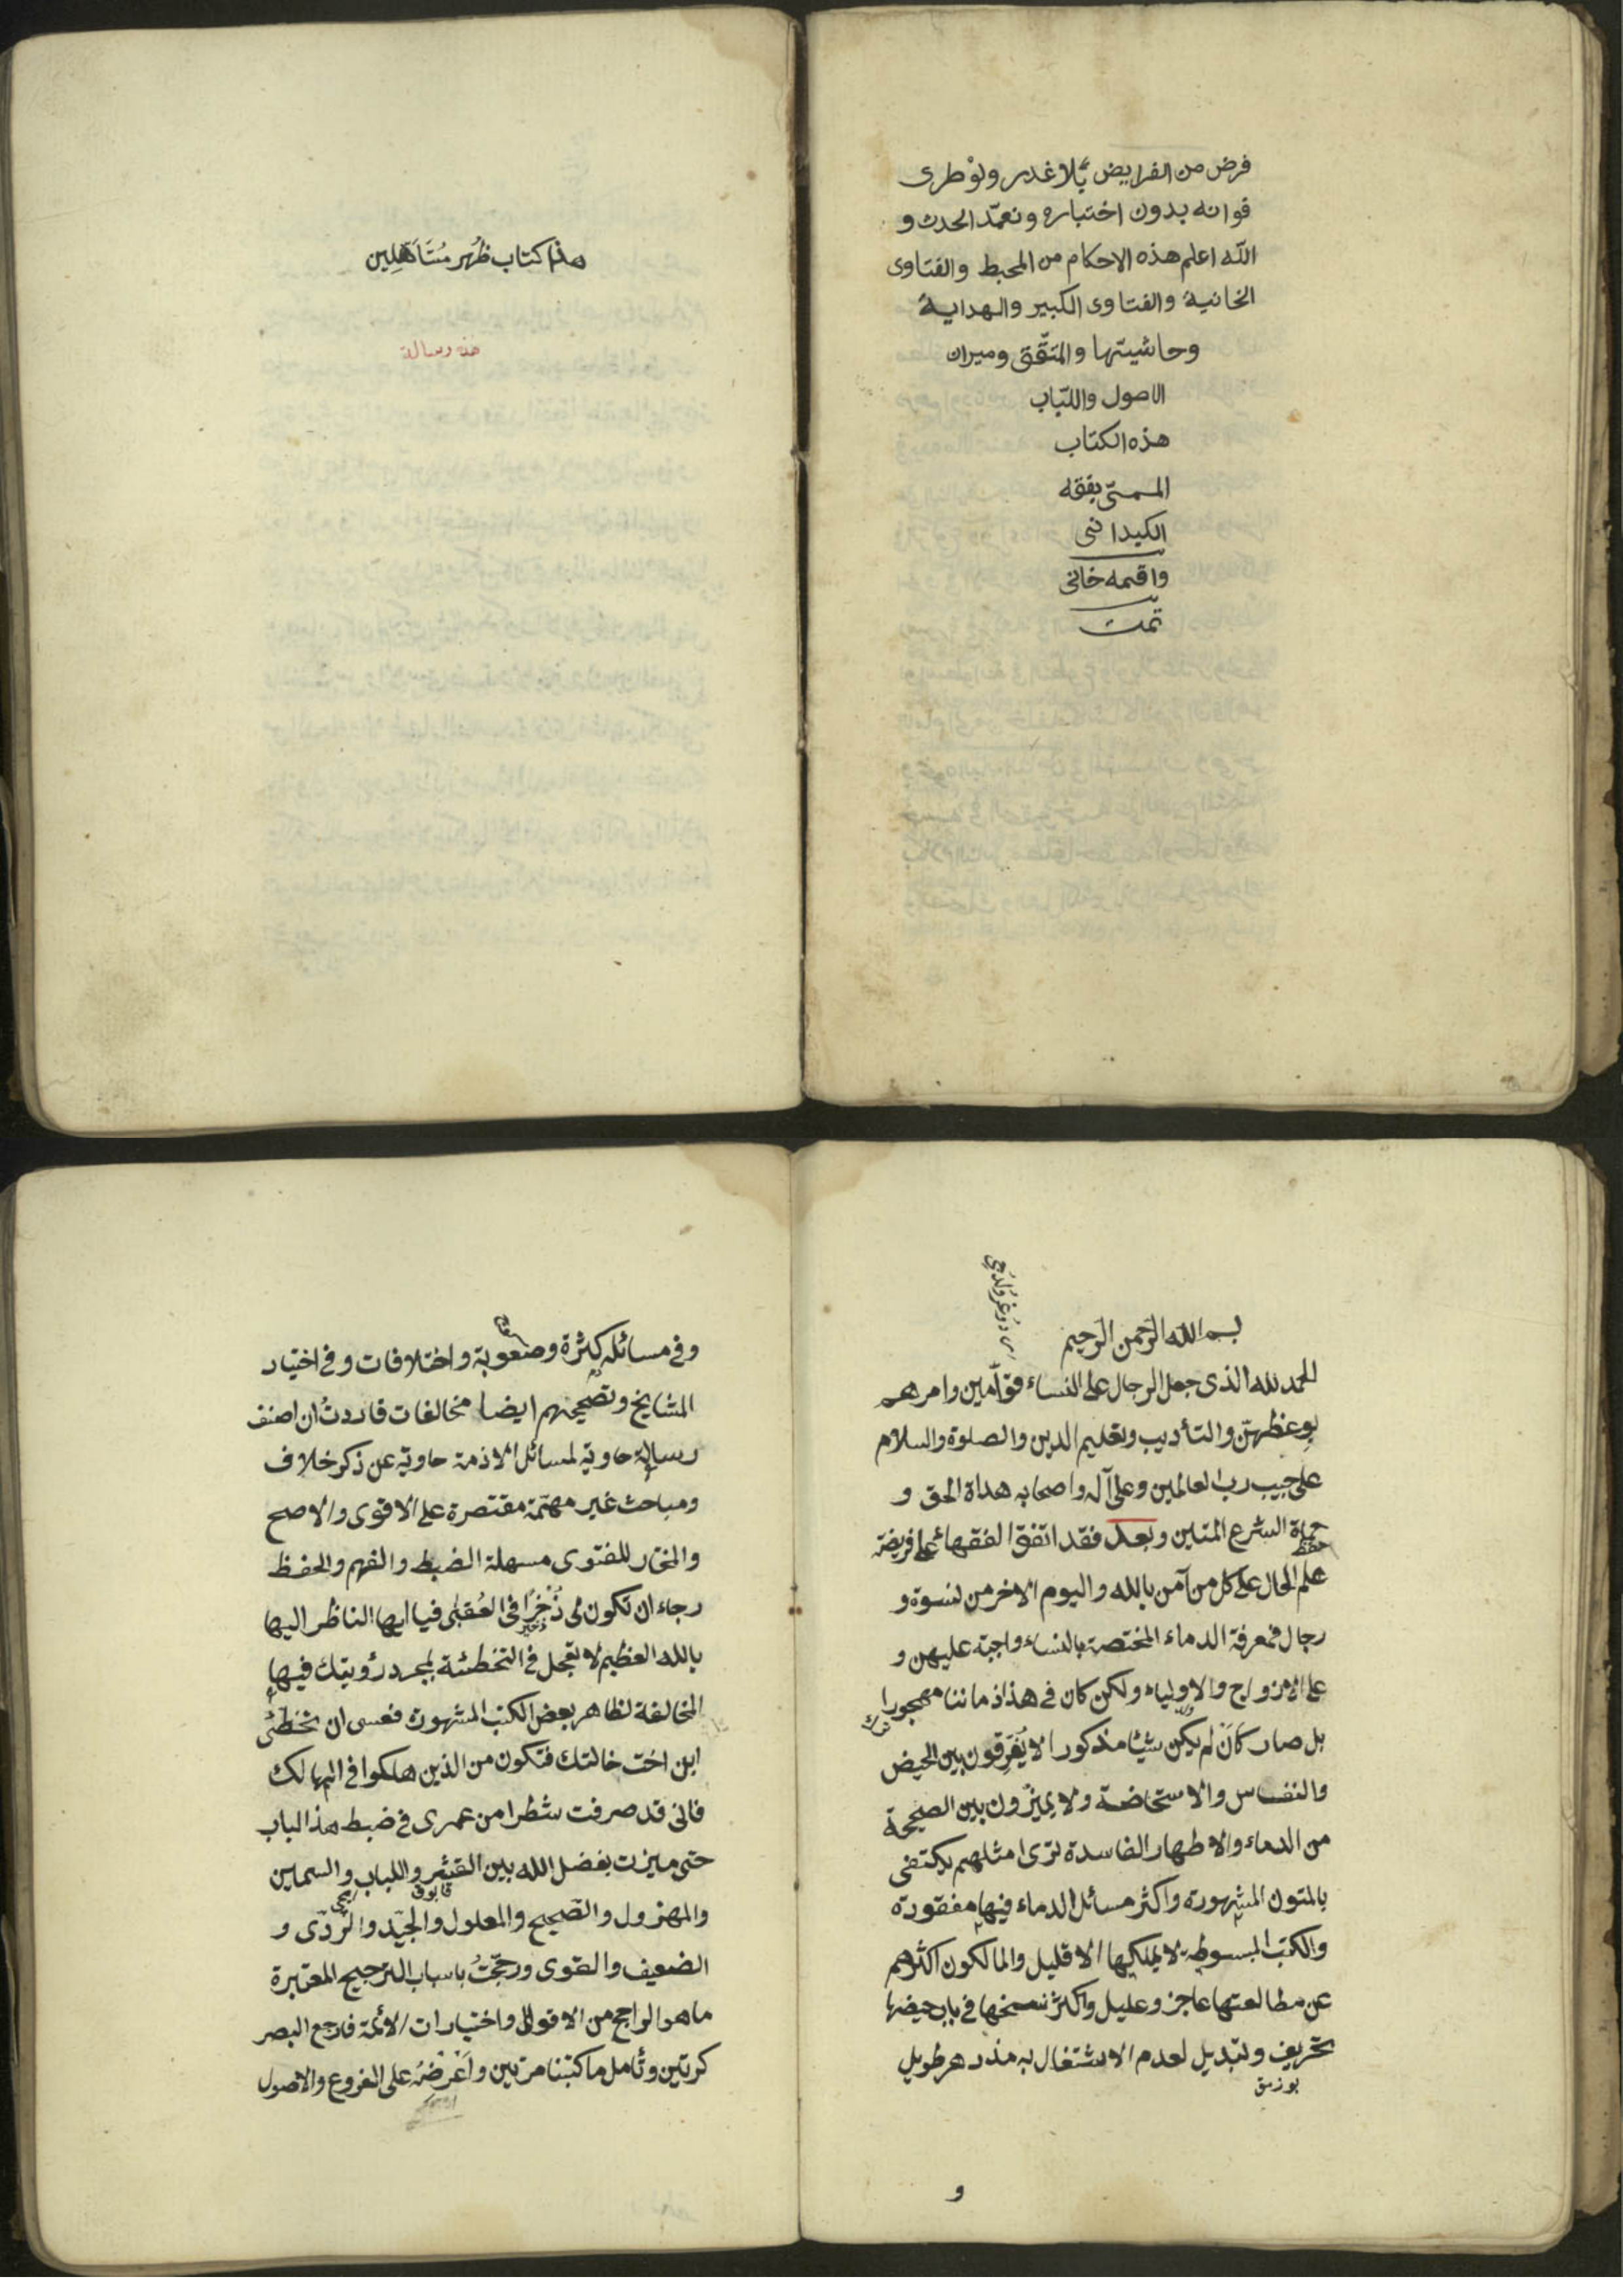 فرض من الفرايض بلا غدر ولو طرى
فوانه بدون اختباره وتعمّد الحدث و
الله اعلم هذه الاحكام من المحيط والفتاوى
الخانية والفتاوى الكبير والهداية
وحاشيتها والمتّقق وميران
الاصول واللباب
هذه الكتاب
المسمّى بفقه
الكيدانى
واقمه خانى
تمت
هذا كتاب ظُهر مُتَأَهِلِين
هذه رسالة
بسم الله الرحمن الرحيم
الحمد لله الذى جعل الرجال على النساء قوّامين وامرهم
بوعظهنّ والتأديب وتعليم الدين والصلوة والسلام
على حبيب رب العالمين وعلى آله واصحابه هداة الحق و
حماة الشرع المتين وبعد فقد اتفق الفقهاء على فريضة
حفظ
علم الحال على كل من آمن بالله واليوم الاخر من نسوة و
رجال فمعرفة الدماء المختصة بالنساء واجبة عليهن و
على الازواج والاولياء ولكن كان فى هذا زماننا مهجورا
ترك
بل صار كَانَ لم يكن شيئا مذكورا لا يُفَرِقون بين الحيض
والنفاس والاستحاضة ولا يميّزون بين الصحيحة
من الدماء والاطهار الفاسدة ترى امثلهم يكتفى
بالمتون المشهورة واكثر مسائل الدماء فيها مفقودة
والكتب المبسوطة لا يملكها الا قليل والمالكون اكثرهم
عن مطالعتها عاجز وعليل واكثر نسخها فى باب حيضها
تحريف وتبديل لعدم الاشتغال به مذ دهر طويل
بوزمق
و
وفى مسائله كثرة وصعوبة واختلافات وفى اختيار
المشايخ وتصحيحهم ايضا مخالفات فاردتُ ان اصنف
رسالة حاوية لمسائل الاذمة حاوية عن ذكر خلاف
ومباحث غير مهمّة مقتصرة على الاقوى والاصح
والمختار للفتوى مسهلة الضبط والفهم والحفظ
رجاء ان تكون لى ذُخرًا فى العُقبٰى فيا ايها الناظر اليها
بالله العظيم لا تعجل فى التخطئة بمجرد رؤيتك فيها
المخالفة لظاهر بعض الكتب المشهورة فعسى ان تخطئ
ابن اخت خالتك فتكون من الذين هلكوا فى المهالك
فانى قد صرفت شطرا من عمرى فى ضبط هذا الباب
حتى ميزت بفضل الله بين القشر واللباب والسمين
قابوق
والمهزول والصّحيح والمعلول والجيّد والرّدى و
الضعيف والقوى ورجّحتُ باسباب الترجيح المعتبرة
ما هو الراجح من الاقوال واختيارات الائمة فارجع البصر
كرتين وتأمل ما كتبنا مرتين واَعْرِضهُ على الفروع والاصول